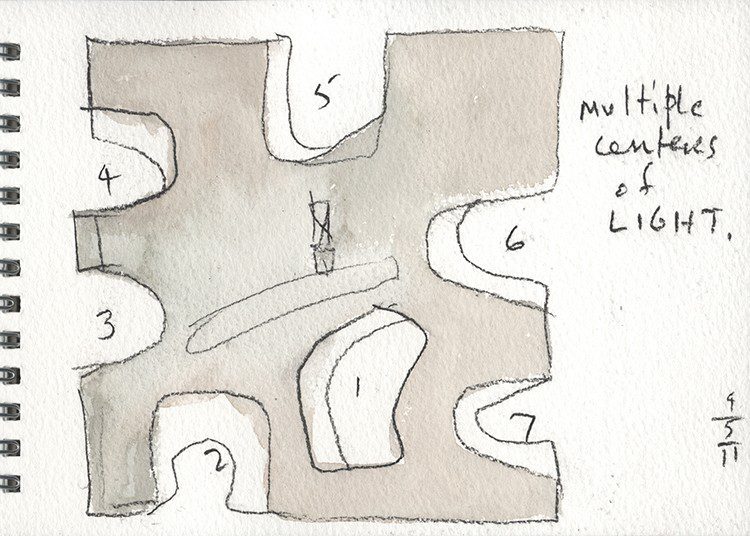 5
4
6
3
1
7
2
multiple
centers
of
LIGHT.
4
5
11